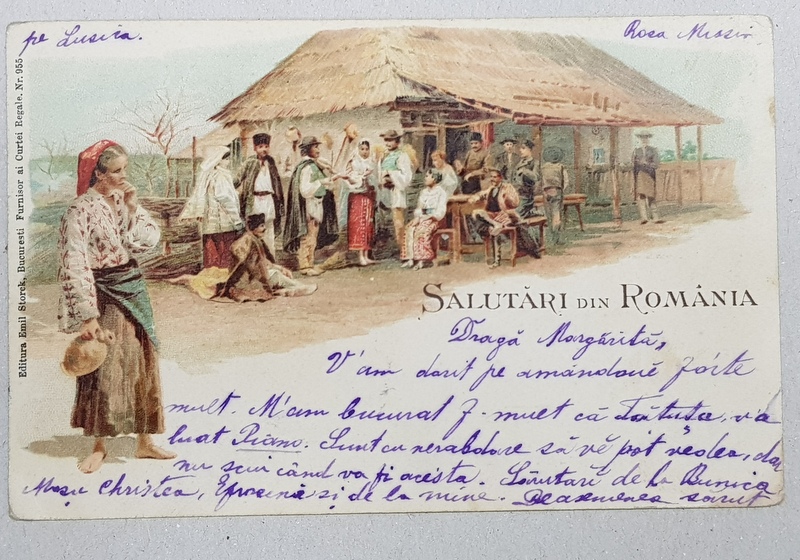 pe Lusica.
Rosa
Editura Emil Storck, Bucuresti Furnisor ai Curtei Regale. Nr. 955
SALUTĂRI DIN ROMÂNIA
Dragă Margărită,
V'am dorit pe amândouĕ forte
mult. M'am bucurat f. mult că Tătuța, v'a
luat Piano. Sunt cu nerabdare să vĕ pot vedea, dar
nu sciu când va fi acesta. Sărutări de la Bunica
Moșu Christea, Efrosina și de la mine. Deasemenea sărut